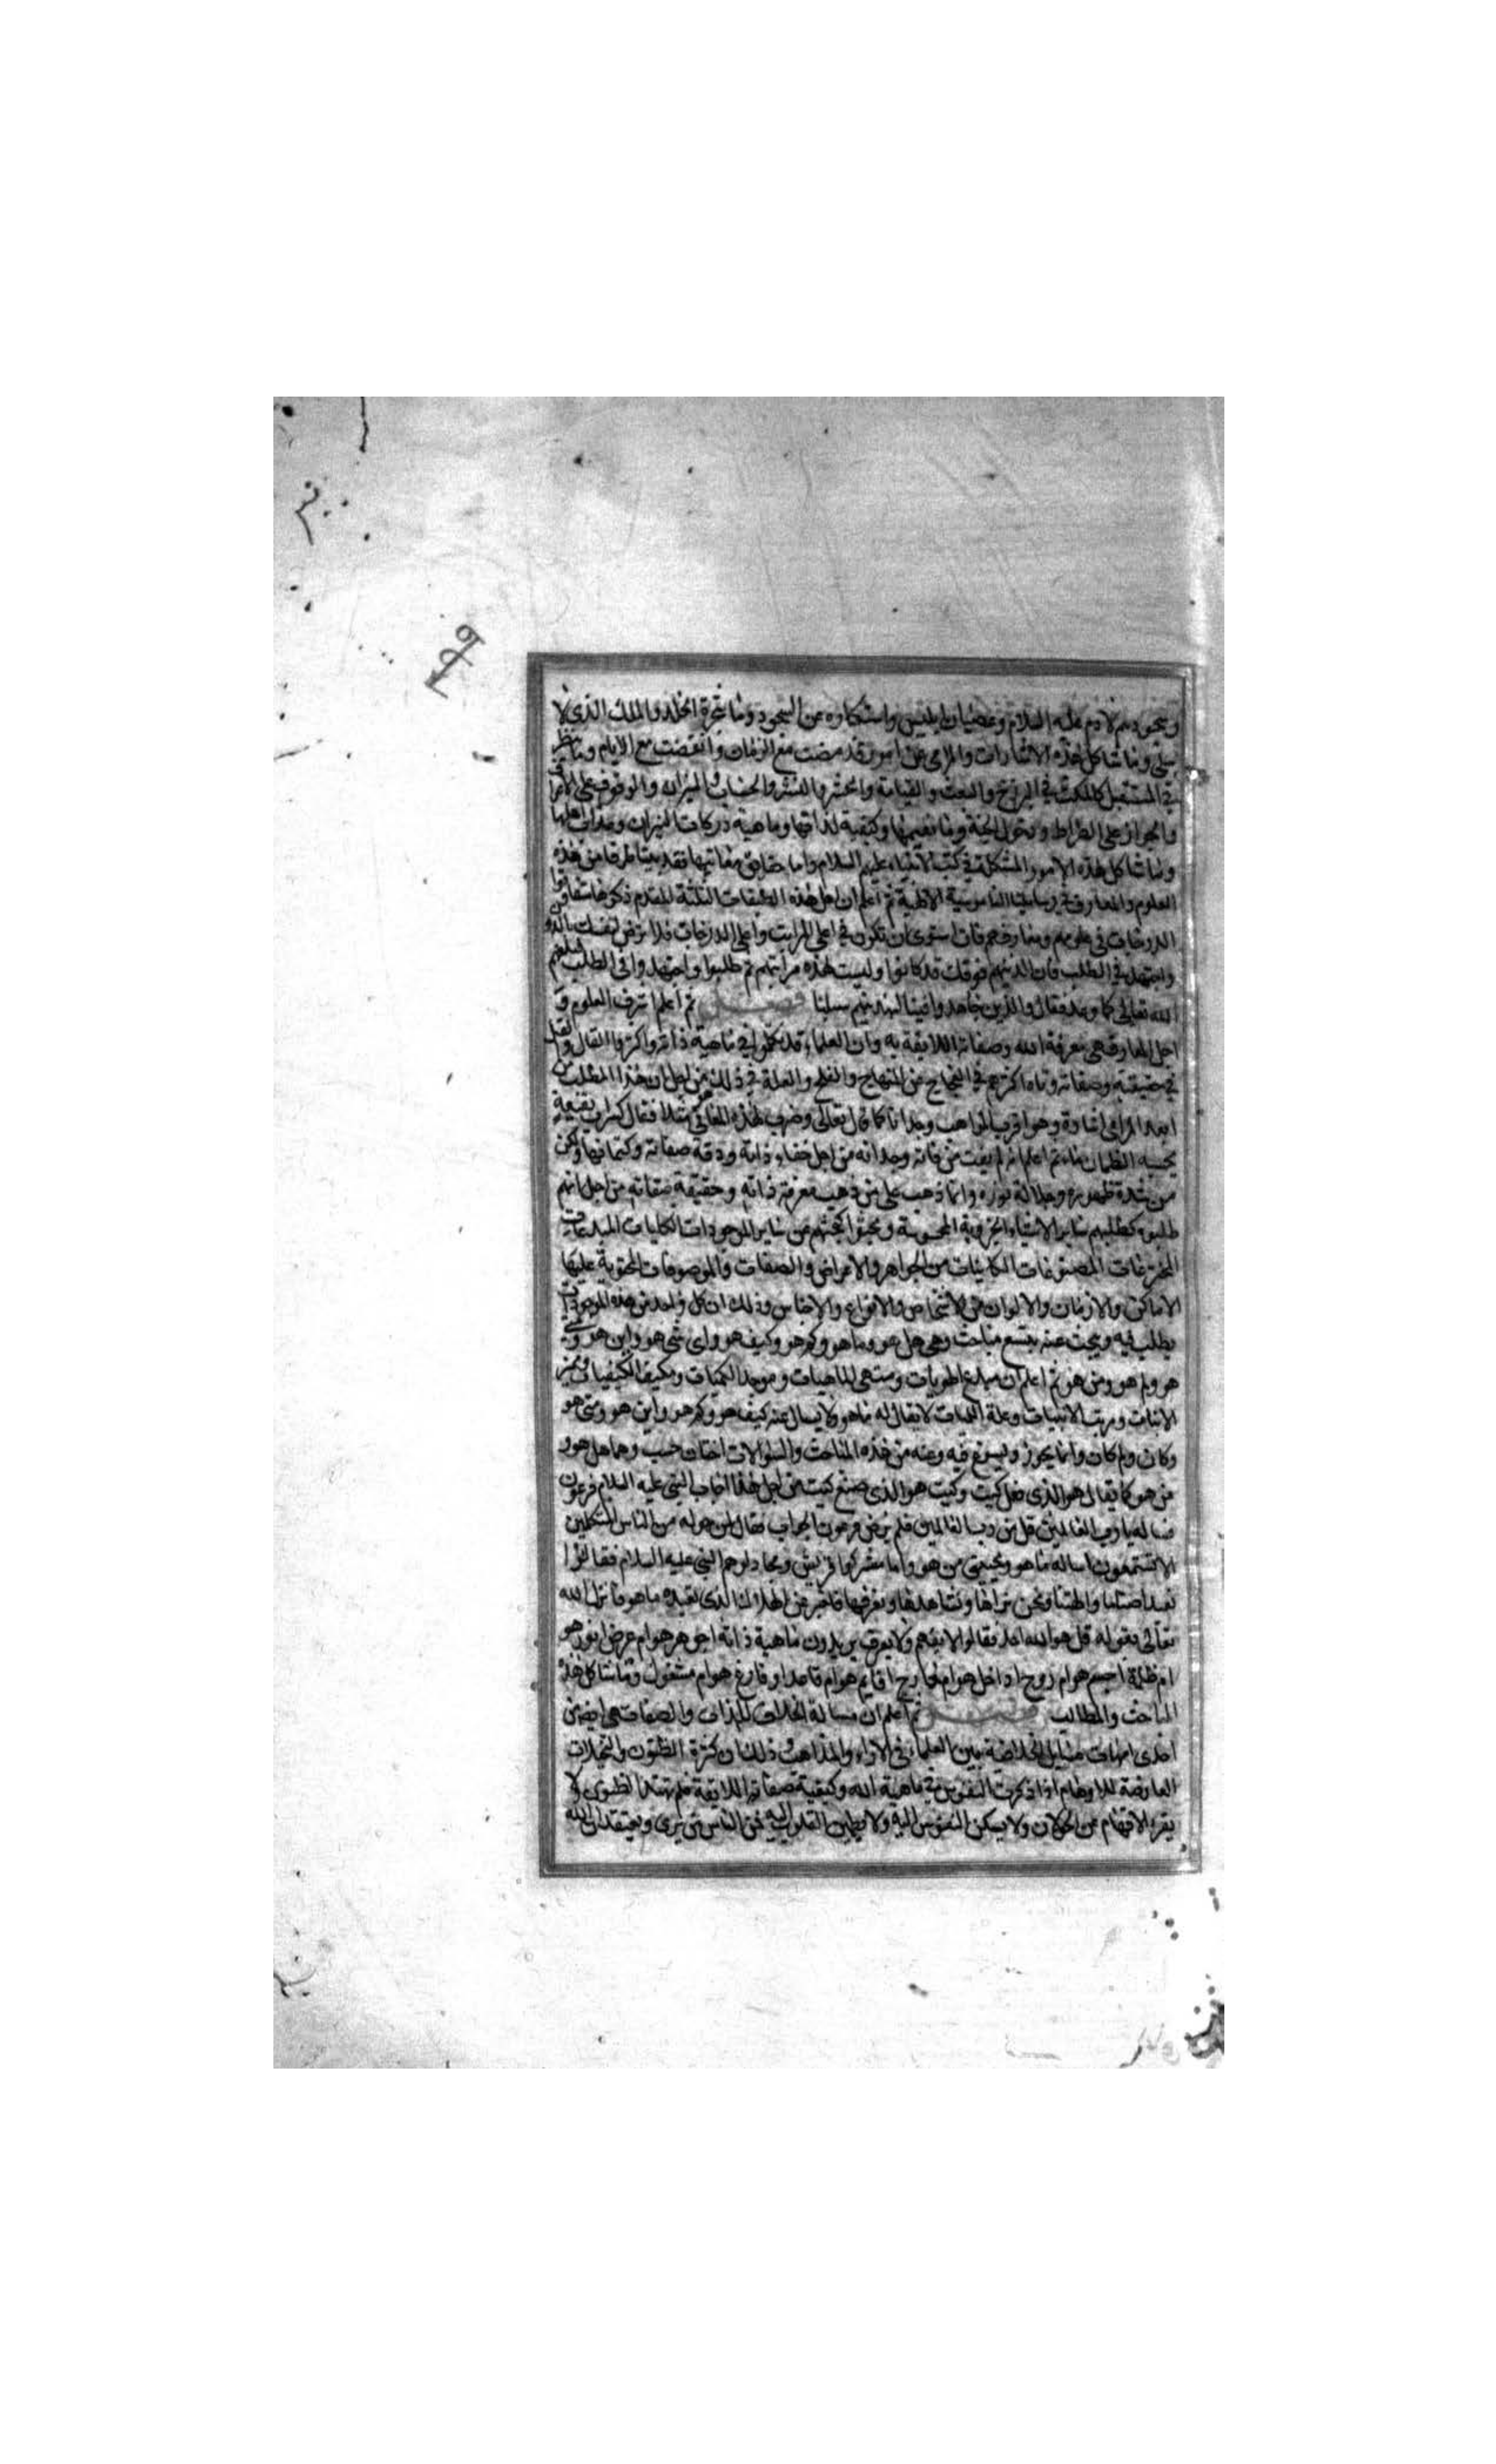 وسجودهم لادم عليه السلام وعصيان ابليس واستكباره عن السجود وما شجرة الخلد والملك الذي لا
يبلى وما شاكل هذه الاشارات والمرامى عن امور قد مضت مع الزمان وانقضت مع الايام وما ينتظر
في المستقبل كالمكث في البرزخ والبعث والقيامة والحشر والنشر والحساب والميزان والوقوف على الاعراف
والجواز على الصراط ودخول الجنة وما نعيمها وكيفية لذاتها وماهية دركات النيران وعذاب اهلها
وما شاكل هذه الامور المشكلة في كتب الانبياء عليهم السلام واما حقايق معانيها فقد بينا طرفا من هذه
العلوم والمعارف في رسايلنا الناموسية الالهية ثم اعلم ان اهل هذه الطبقات الثلثة المقدم ذكرها متفاوتوا
الدرجات في علومهم ومعارفهم فان استوى ان تكون في اعلى المراتب واعلى الدرجات فلا ترض لنفسك بالدون
واجتهد في الطلب فان الذينهم فوقك قد كانوا وليست لهذه مراتبهم ثم طلبوا واجتهدوا في الطلب فبلغهم
الله تعالى كما وعد فقال والذين جاهدوا فينا لنهدينهم سبلنا فصل ثم اعلم اشرف العلوم و
اجل المعارف هى معرفة الله وصفاته اللايقة به وان العلماء قد تكلموا في ماهية ذاته واكثروا القال والقيل
في حقيقته وصفاته وتاه اكثرهم في الحجاج عن المنهاج والعلة في ذلك من اجل ان هذا المطلب من
ابعد المرامى اشارة وهو اقرب المواهب وجدانا كما قال تعالى وضرب لهذه المعانى مثلا فقال كسراب بقيعة
يحسبه الظمان ماء ثم اعلم انه لم يفت من فاته وجدانه من اجل خفاء ذاته ودقة صفاته وكتمانها ولكن
من شدة ظهوره وجلالة نوره وانما ذهب على من ذهب معرفة ذاته وحقيقة صفاته من اجل انهم
طلبوه كطلبهم ساير الاشياء الجزوية المحسوسة وبحثوا كبحثهم عن ساير الموجودات الكليات المبدعات
المخترعات المصنوعات الكاينات من الجواهر والاعراض والصفات والموصوفات المحتوية عليها
الاماكن والازمان والالوان من الاشخاص والانواع والاجناس وذلك ان كل واحد من هذه الموجودات
يطلب فيه ويبحث عنه بتسع مباحث وهي هل هو وما هو وكم هو وكيف هو واى شي هو واين هو ومتى
هو ولم هو ومن هو ثم اعلم ان مبدع الهويات ومنتهى الماهيات وموجد الكميات ومكيف الكيفيات ومميز
الانيات ومرتب الاينيات وعلة اللميات لا يقال له ما هو ولا يسال عنه كيف هو وكم هو واين هو ومتى هو
وكان ولم كان وانما يجوز ويسوغ فيه وعنه من هذه المباحث والسؤالات اثنان حسب وهما هل هو و
من هو كما يقال هو الذي فعل كيت وكيت هو الذي صنع كيت من اجل هذا اجاب النبي عليه السلام فرعون
فساله ما رب العالمين قل من رب العالمين فلم يرض فرعون الجواب فقال لمن حوله من الناس المتكلمين
الا تستمعون اساله ما هو ويجيبني من هو واما مشركوا قريش ومجادلوهم النبي عليه السلام فقالوا
نعبد اصنامنا والهتنا ونحن نراها ونشاهدها ونعرفها فاخبرنا عن الهك الذي تعبده ما هو فانزل الله
تعالى بقوله قل هو الله احد فقالوا لا يفهم ولا يعرف يريدون ماهية ذاته اجوهر هو ام عرض انور هو
ام ظلمة اجسم هو ام روح اداخل هو ام خارج اقايم هو ام قاعد او فارغ هو ام مشغول وما شاكل هذه
المباحث والمطالب فصل ثم اعلم ان مسالة الخلاف للذات والصفات هي ايضا من
احدى امهات مسايل الخلافية بين العلماء في الاراء والمذاهب وذلك ان كثرة الظنون والتخيلات
العارضة للاوهام اذا فكرت النفوس في ماهية الله وكيفية صفاته اللايقة فلم تهتد الظنون ولا
يقر الافهام عن الجولان ولا يسكن النفوس اليه ولا يطمين القلوب اليه فمن الناس من يرى ويعتقد ان الله